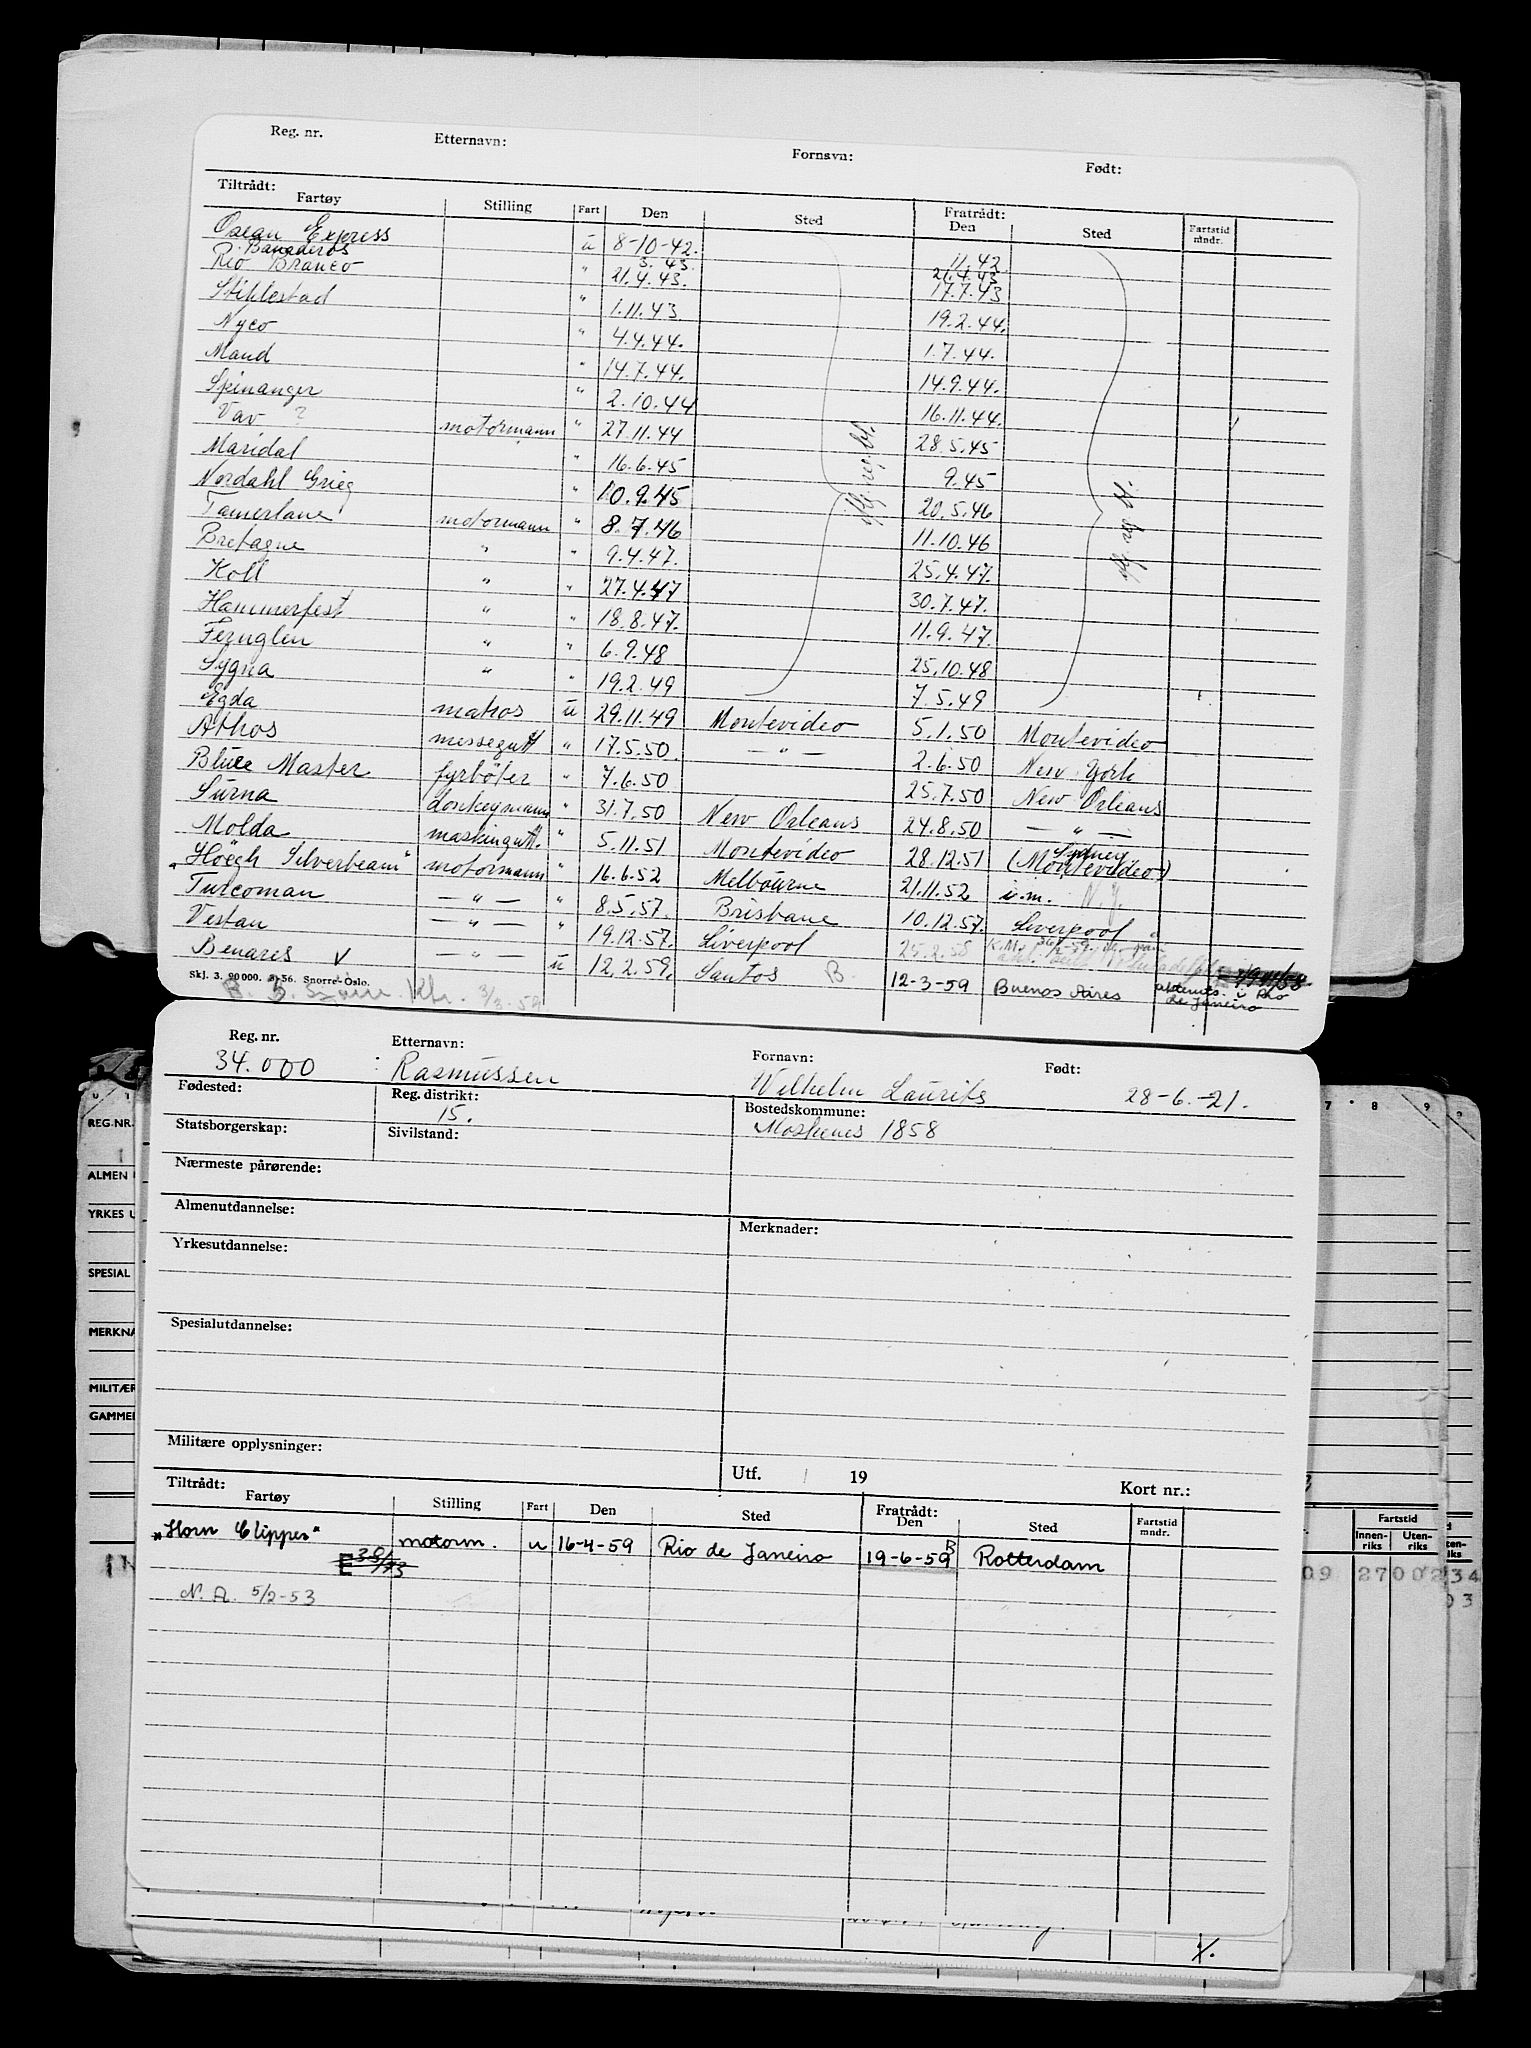 Reg. nr. Etternavn: Fornavn: Født:
Tiltrådt: Fratrådt:
Fartøy Stilling Fart Den Sted Den Sted Fartstid mndr.
Osean Express u 8-10-42. 11.42
P. Banaderos 3.43. 21.4.43
Rio Branco " 21.4.43. 17.7.43
Stiklestad " 1.11.43 19.2.44.
Nyco " 4.4.44. 1.7.44.
Maud " 14.7.44. 14.9.44.
Spinanger " 2.10.44 16.11.44.
Vav ? motormann " 27.11.44 28.5.45
Maridal " 16.6.45 9.45
Nordahl Grieg " 10.9.45 20.5.46
Tamerlane motormann " 8.7.46 11.10.46
Bretagne " " 9.4.47. 25.4.47.
Koll " " 27.4.47 30.7.47.
Hammerfest " " 18.8.47. 11.9.47.
Fernglen " " 6.9.48 25.10.48
Sygna " " 19.2.49 7.5.49
Egda matros u 29.11.49 Montevideo 5.1.50 Montevideo
Athos messegutt " 17.5.50. — " — 2.6.50 New York
Blue Master fyrbøter " 7.6.50 25.7.50 New Orleans
Surna donkeymann " 31.7.50 New Orleans 24.8.50 — " —
Molda maskingutt. " 5.11.51 Montevideo 28.12.51 Sydney (Montevideo)
"Höegh Silverbeam" motormann " 16.6.52 Melbourne 21.11.52 u.m. N.Y.
Turcoman — " — " 8.5.57. Brisbane 10.12.57. Liverpool
Vestan — " — " 19.12.57. Liverpool 25.2.58
Benares v — " — u 12.2.59. Santos B. 12-3-59 Buenos Aires
de Janeiro
Skj. 3. 90000. 3-56. Snorre-Oslo.
3/3 59
Reg. nr. Etternavn: Fornavn: Født:
34.000 Rasmussen Wilhelm Laurits 28-6.-21.
Fødested: Reg. distrikt: 15. Bostedskommune: Moskenes 1858
Statsborgerskap: Sivilstand:
Nærmeste pårørende:
Almenutdannelse: Merknader:
Yrkesutdannelse:
Spesialutdannelse:
Militære opplysninger:
Utf. / 19 Kort nr.:
Tiltrådt: Fratrådt:
Fartøy Stilling Fart Den Sted Den Sted Fartstid mndr.
"Horn Clipper" motorm. u 16-4-59 Rio de Janeiro 19-6-59 B Rotterdam
N.A. 5/2-53
REG.NR.
ALMEN
YRKES U
SPESIAL
MERKNA
MILITÆR
GAMMEL
7 8 9
Fartstid
Innenriks Utenriks
09 27 00 2 34
03